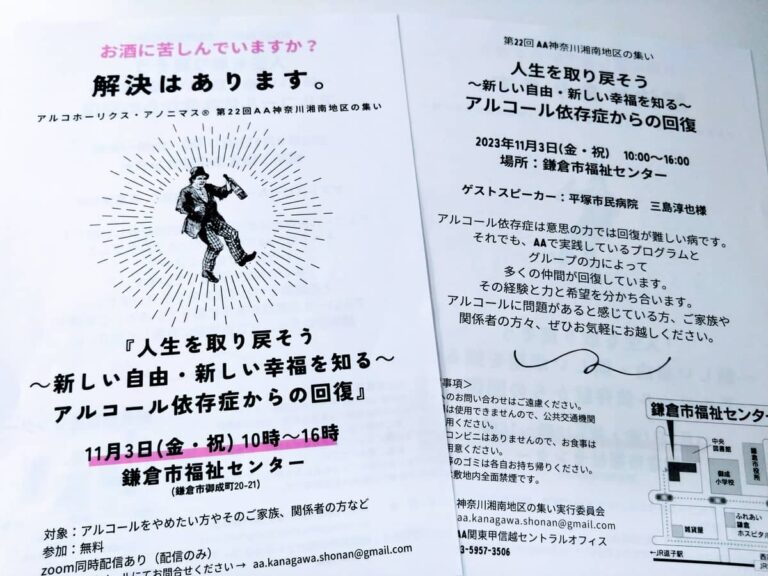 お酒に苦しんでいますか？
解決はあります。
アルコホーリクス・アノニマス® 第22回AA神奈川湘南地区の集い
『人生を取り戻そう
～新しい自由・新しい幸福を知る～
アルコール依存症からの回復』
11月3日(金・祝) 10時～16時
鎌倉市福祉センター
(鎌倉市御成町20-21)
対象：アルコールをやめたい方やそのご家族、関係者の方など
参加：無料
zoom同時配信あり（配信のみ）
ールにてお問合せください→ aa.kanagawa.shonan@gmail.com
第22回 AA神奈川湘南地区の集い
人生を取り戻そう
～新しい自由・新しい幸福を知る～
アルコール依存症からの回復
2023年11月3日(金・祝) 10:00～16:00
場所：鎌倉市福祉センター
ゲストスピーカー：平塚市民病院 三島淳也様
アルコール依存症は意思の力では回復が難しい病です。
それでも、AAで実践しているプログラムと
グループの力によって
多くの仲間が回復しています。
その経験と力と希望を分かち合います。
アルコールに問題があると感じている方、ご家族や
関係者の方々、ぜひお気軽にお越しください。
事項＞
のお問い合わせはご遠慮ください。
は使用できませんので、公共交通機関
用ください。
コンビニはありませんので、お食事は
用意ください。
等のゴミは各自お持ち帰りください。
敷地内全面禁煙です。
神奈川湘南地区の集い実行委員会
aa.kanagawa.shonan@gmail.com
AA関東甲信越セントラルオフィス
3-5957-3506
鎌倉市福祉センタ
中央
図書館
御成
小学校
鎌倉
市役所
雑貨屋
ふれあい
鎌倉
ホスピタ
←JR逗子駅